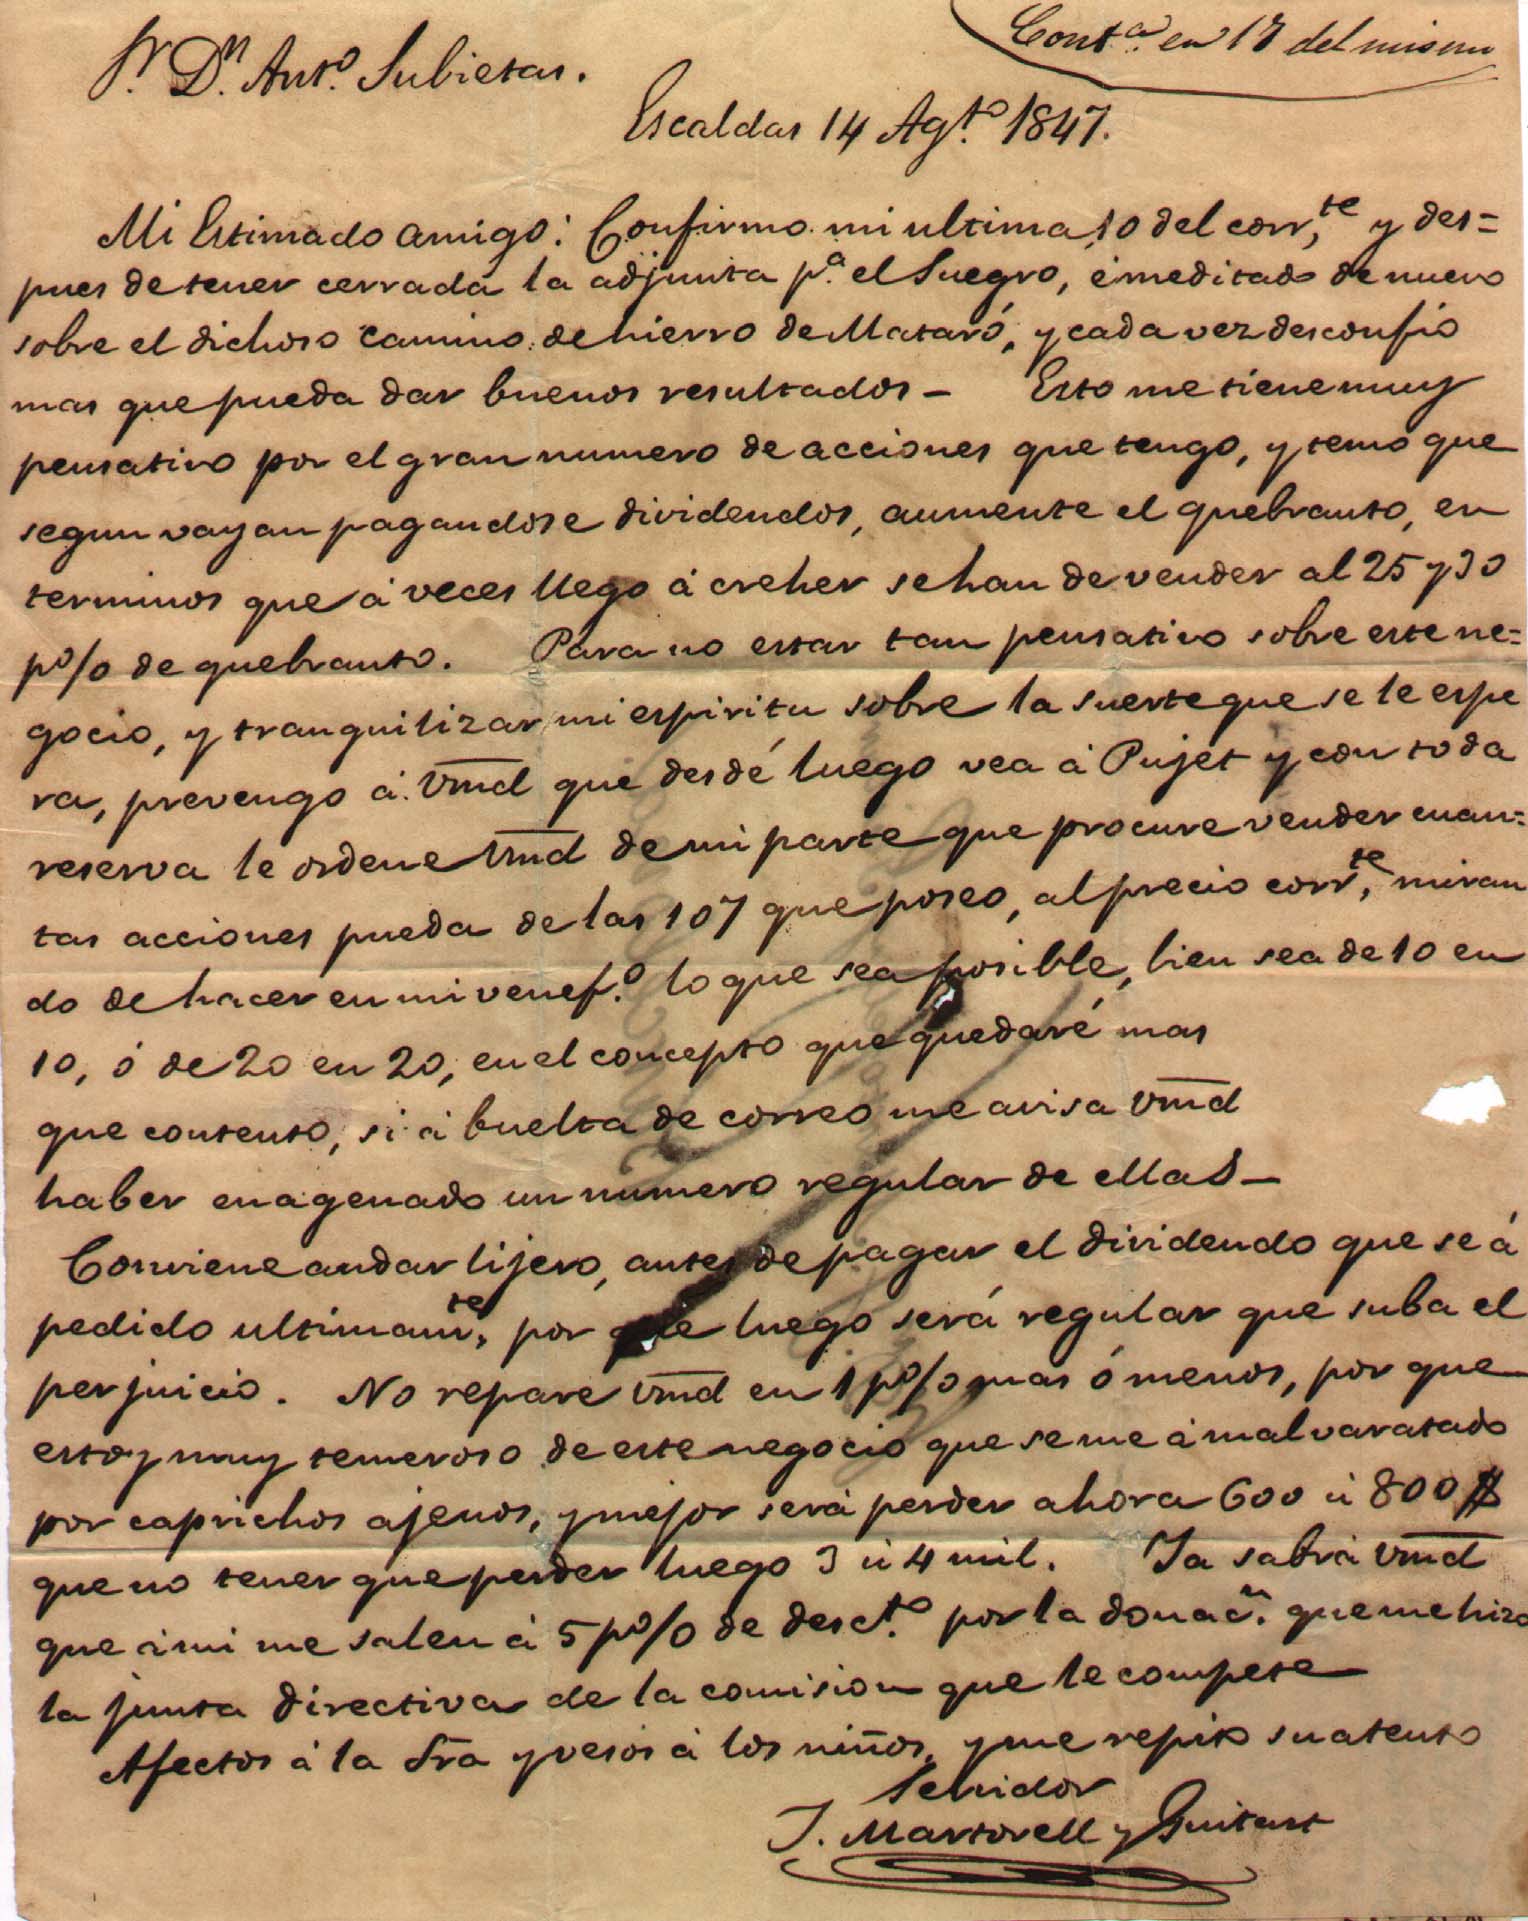 Contª. en 17 del mismo
Sr. Dn. Antº. Subietas.
Escaldas 14 Agtº. 1847.
Mi Estimado amigo: Confirmo mi ultima 10 del corr,te y des=
pues de tener cerrada la adjunta pª. el Suegro, é meditado de nuevo
sobre el dichoso camino de hierro de Mataró, y cada vez desconfio
mas que pueda dar buenos resultados - Esto me tiene muy
pensativo por el gran numero de acciones que tengo, y temo que
segun vayan pagandose dividendos, aumente el quebranto, en
terminos que á veces llego á creher se han de vender al 25 y 30
pº/o de quebranto. Para no estar tan pensativo sobre este ne=
gocio, y tranquilizar mi espiritu sobre la suerte que se le espe
ra, prevengo á Vmd que desdé luego vea á Pujet y con toda
reserva le ordene Vmd de mi parte que procure vender cuan=
tas acciones pueda de las 107 que poseo, al precio corr,te miran
do de hacer en mi venef.º lo que sea posible, bien sea de 10 en
10, ó de 20 en 20, en el concepto que quedaré mas
que contento, si á buelta de correo me avisa Vmd
haber enagenado un numero regular de ellas -
Conviene andar lijero, antes de pagar el dividendo que se á
pedido ultimam,te por que luego será regular que suba el
perjuicio. No repare Vmd en 1 pº/o mas ó menos, por que
estoy muy temeroso de este negocio que se me á malvaratado
por caprichos ajenos, y mejor será perder ahora 600 ú 800 $
que no tener que perder luego 3 ú 4 mil. Ya sabrá Vmd
que á mi me salen á 5 pº/o de desct.º por la donacn. que me hizo
la junta directiva de la comision que le compete
Afectos á la Sra y vesos á los niños, y me repito su atento
Servidor
J. Martorell y Guitart